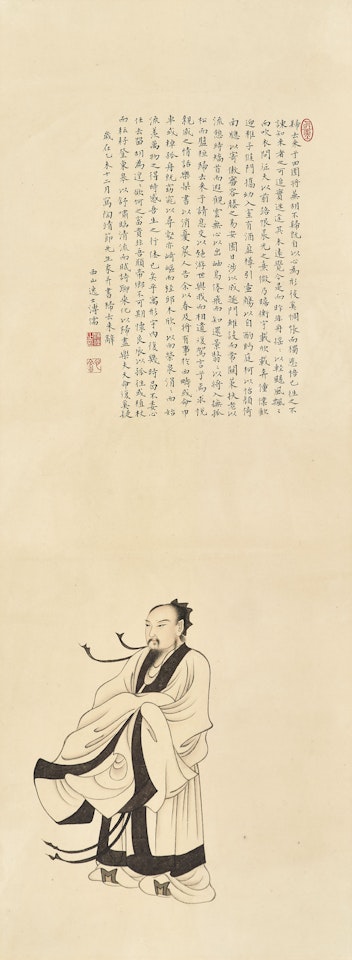 歸去來兮田園將蕪胡不歸既自以心為形役奚惆悵而獨悲悟已往之不
諫知來者之可追實迷途其未遠覺今是而昨非舟搖〻以輕颺風飄〻
而吹衣問征夫以前路恨晨光之熹微乃瞻衡宇載欣載奔僮僕歡
迎稚子候門攜幼入室有酒盈樽引壺觴以自酌眄庭柯以怡顏倚
南牕以寄傲審容膝之易安園日涉以成趣門雖設而常關策扶老以
流憩時矯首而遐觀雲無心以出岫鳥倦飛而知還景翳〻以將入撫孤
松而盤桓歸去來兮請息交以絕游世與我而相遺復駕言兮焉求悅
親戚之情話樂琴書以消憂農人告余以春及將有事於西疇或命巾
車或棹孤舟既窈窕以尋壑亦崎嶇而經邱木欣〻以向榮泉涓〻而始
流羨萬物之得時感吾生之行休已矣乎寓形宇內復幾時曷不委心
任去留胡為遑〻欲何之富貴非吾願帝鄉不可期懷良辰以孤往或植杖
而耘耔登東皋以舒嘯臨清流而賦詩聊乘化以歸盡樂夫天命復奚疑
歲在乙未十二月寫陶靖節先生象并書歸去來辭
西山逸士溥儒